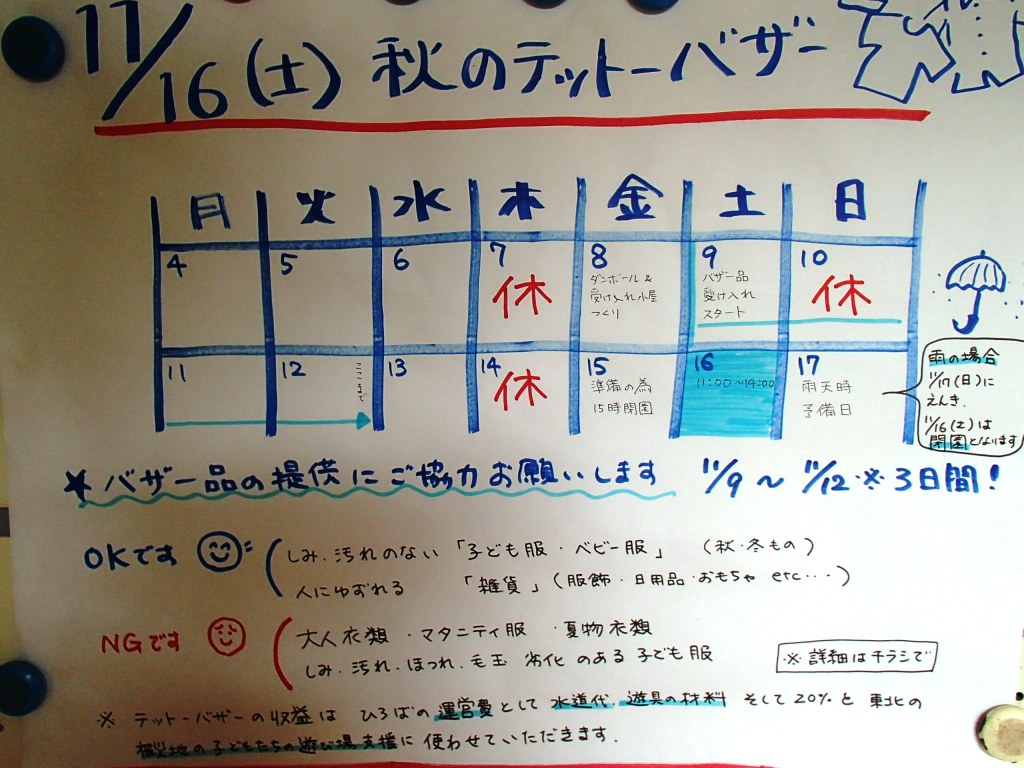 11/16(土) 秋のテットーバザー
月 火 水 木 金 土 日
4 5 6 7 8 9 10
休
ダンボール&
受け入れ小屋
つくり
バザー品
受け入れ
スタート
休
11 12 13 14 15 16 17
ここまで
休
準備の為
15時閉園
11:00~14:00
雨天時
予備日
雨の場合
11/17(日)に
えんき.
11/16(土)は
閉園となります
★バザー品の提供にご協力お願いします 11/9~11/12※3日間!
OKです
しみ.汚れのない「子ども服・ベビー服」 (秋・冬もの)
人にゆずれる 「雑貨」(服飾・日用品・おもちゃ etc・・・)
NGです
大人衣類・マタニティ服・夏物衣類
しみ.汚れ.ほつれ.毛玉 劣化 のある 子ども服
※詳細はチラシで
※ テットーバザーの収益は ひろばの運営費として 水道代.遊具の材料 そして20%と 東北の
被災地の子どもたちの遊び場支援に 使わせていただきます.